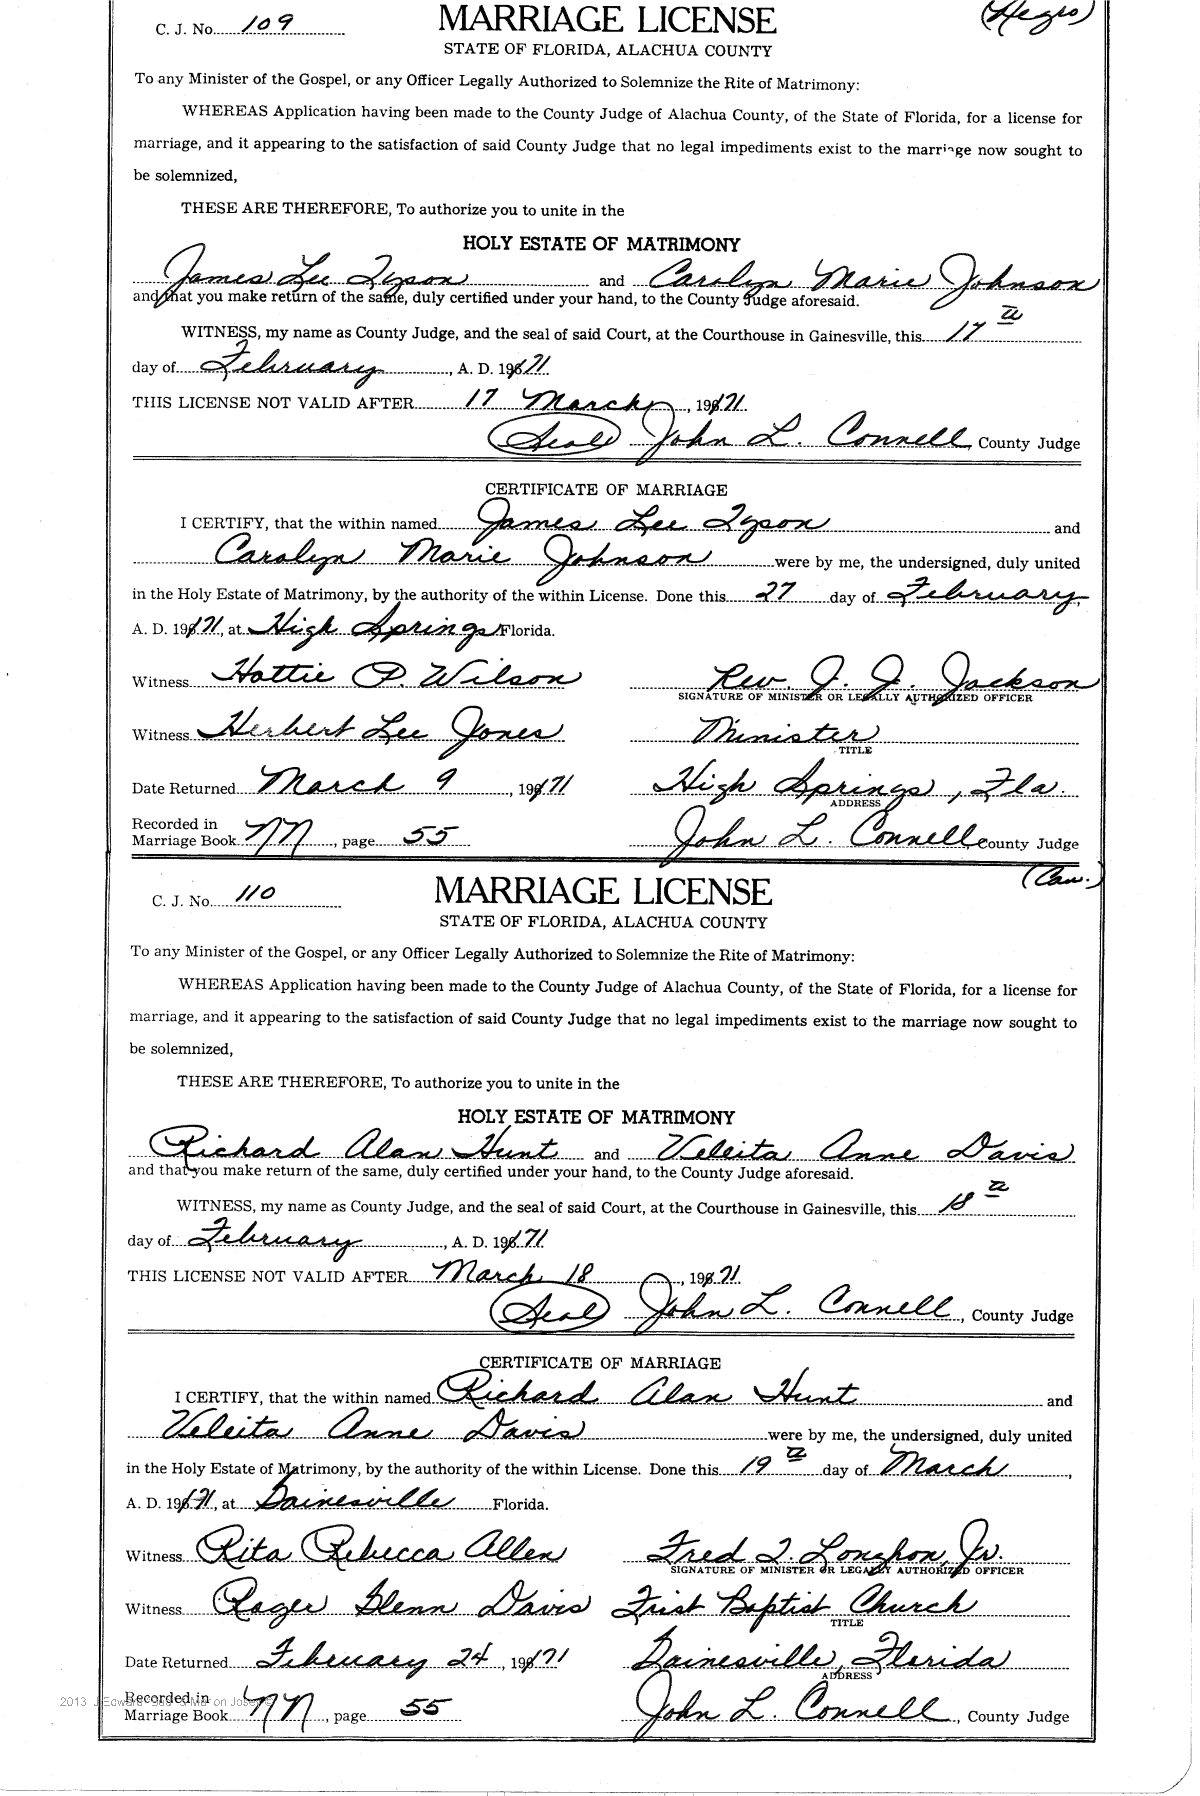 C. J. No. 109 MARRIAGE LICENSE (Negro)
STATE OF FLORIDA, ALACHUA COUNTY
To any Minister of the Gospel, or any Officer Legally Authorized to Solemnize the Rite of Matrimony:
WHEREAS Application having been made to the County Judge of Alachua County, of the State of Florida, for a license for
marriage, and it appearing to the satisfaction of said County Judge that no legal impediments exist to the marriage now sought to
be solemnized,
THESE ARE THEREFORE, To authorize you to unite in the
HOLY ESTATE OF MATRIMONY
James Lee Tyson and Carolyn Marie Johnson
and that you make return of the same, duly certified under your hand, to the County Judge aforesaid.
WITNESS, my name as County Judge, and the seal of said Court, at the Courthouse in Gainesville, this 17th
day of February, A. D. 1971
THIS LICENSE NOT VALID AFTER 17 March, 1971
(Seal) John L. Connell, County Judge
CERTIFICATE OF MARRIAGE
I CERTIFY, that the within named James Lee Tyson and
Carolyn Marie Johnson were by me, the undersigned, duly united
in the Holy Estate of Matrimony, by the authority of the within License. Done this 27 day of February,
A. D. 1971, at High Springs Florida.
Witness Hattie P. Wilson Rev. J. J. Jackson
SIGNATURE OF MINISTER OR LEGALLY AUTHORIZED OFFICER
Witness Herbert Lee Jones Minister
TITLE
Date Returned March 9, 1971 High Springs, Fla.
ADDRESS
Recorded in
Marriage Book NN, page 55 John L. Connell County Judge
(Cau.)
C. J. No. 110 MARRIAGE LICENSE
STATE OF FLORIDA, ALACHUA COUNTY
To any Minister of the Gospel, or any Officer Legally Authorized to Solemnize the Rite of Matrimony:
WHEREAS Application having been made to the County Judge of Alachua County, of the State of Florida, for a license for
marriage, and it appearing to the satisfaction of said County Judge that no legal impediments exist to the marriage now sought to
be solemnized,
THESE ARE THEREFORE, To authorize you to unite in the
HOLY ESTATE OF MATRIMONY
Richard Alan Hunt and Veleita Anne Davis
and that you make return of the same, duly certified under your hand, to the County Judge aforesaid.
WITNESS, my name as County Judge, and the seal of said Court, at the Courthouse in Gainesville, this 18th
day of February, A. D. 1971
THIS LICENSE NOT VALID AFTER March 18, 1971
(Seal) John L. Connell, County Judge
CERTIFICATE OF MARRIAGE
I CERTIFY, that the within named Richard Alan Hunt and
Veleita Anne Davis were by me, the undersigned, duly united
in the Holy Estate of Matrimony, by the authority of the within License. Done this 19th day of March,
A. D. 1971, at Gainesville Florida.
Witness Rita Rebecca Allen Fred T. Jr.
SIGNATURE OF MINISTER OR LEGALLY AUTHORIZED OFFICER
Witness Roger Glenn Davis Frist Baptist Church
TITLE
Date Returned February 24, 1971 Gainesville, Florida
ADDRESS
Recorded in
Marriage Book NN, page 55 John L. Connell, County Judge
2013